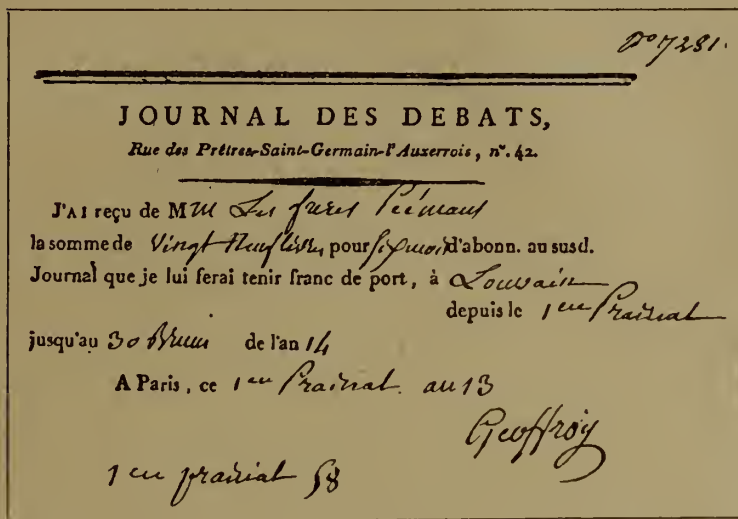 No 7281.
JOURNAL DES DEBATS,
Rue des Prêtres-Saint-Germain-l'Auxerrois, n°. 42.
J'AI reçu de MM Les freres
la somme de Vingt Neuf livres pour six mois d'abonn. au susd.
Journal que je lui ferai tenir franc de port, à Louvain
depuis le 1er Prairial
jusqu'au 30 Brum de l'an 14
A Paris, ce 1er Prairial. an 13
Geoffroy
1er prairial